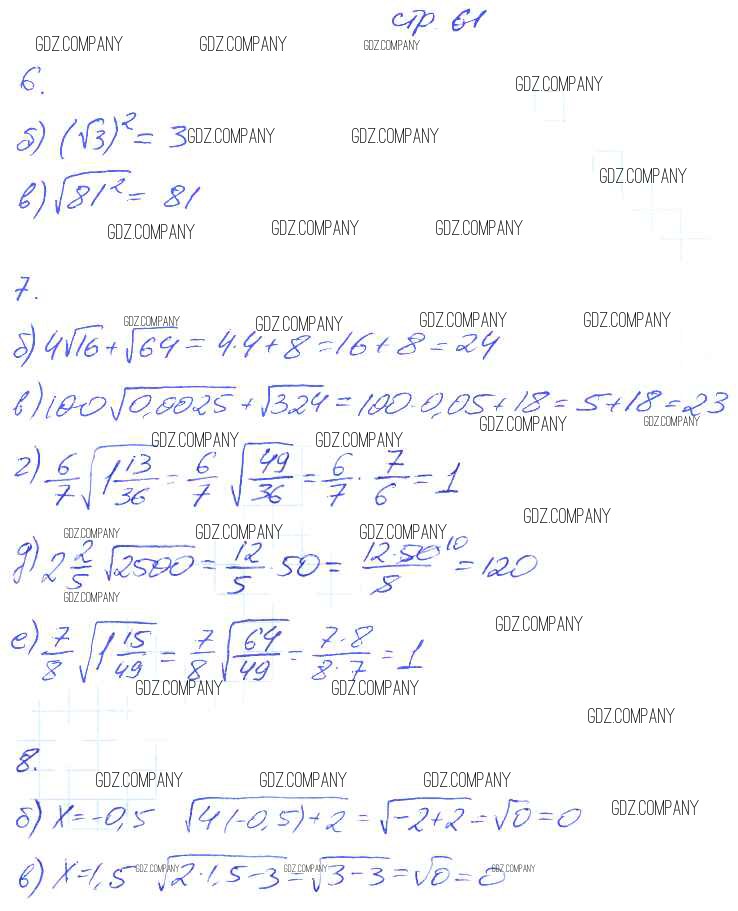 стр. 61
GDZ.COMPANY GDZ.COMPANY GDZ.COMPANY
6.
GDZ.COMPANY
б) (√3)² = 3
GDZ.COMPANY GDZ.COMPANY
GDZ.COMPANY
в) √81² = 81
GDZ.COMPANY GDZ.COMPANY GDZ.COMPANY
7.
GDZ.COMPANY GDZ.COMPANY GDZ.COMPANY GDZ.COMPANY
б) 4√16 + √64 = 4·4 + 8 = 16 + 8 = 24
в) 100√0,0025 + √324 = 100·0,05 + 18 = 5 + 18 = 23
GDZ.COMPANY GDZ.COMPANY
GDZ.COMPANY GDZ.COMPANY
г) 6/7 √(1 13/36) = 6/7 √(49/36) = 6/7 · 7/6 = 1
GDZ.COMPANY
GDZ.COMPANY GDZ.COMPANY GDZ.COMPANY
д) 2 2/5 √2500 = 12/5 · 50 = (12·50 10)/5 = 120
GDZ.COMPANY
GDZ.COMPANY
е) 7/8 √(1 15/49) = 7/8 √(64/49) = (7·8)/(8·7) = 1
GDZ.COMPANY GDZ.COMPANY
GDZ.COMPANY
8.
GDZ.COMPANY GDZ.COMPANY GDZ.COMPANY
GDZ.COMPANY
б) x = -0,5 √(4(-0,5)+2) = √(-2+2) = √0 = 0
в) x = 1,5 √(2·1,5-3) = √(3-3) = √0 = 0
GDZ.COMPANY GDZ.COMPANY GDZ.COMPANY